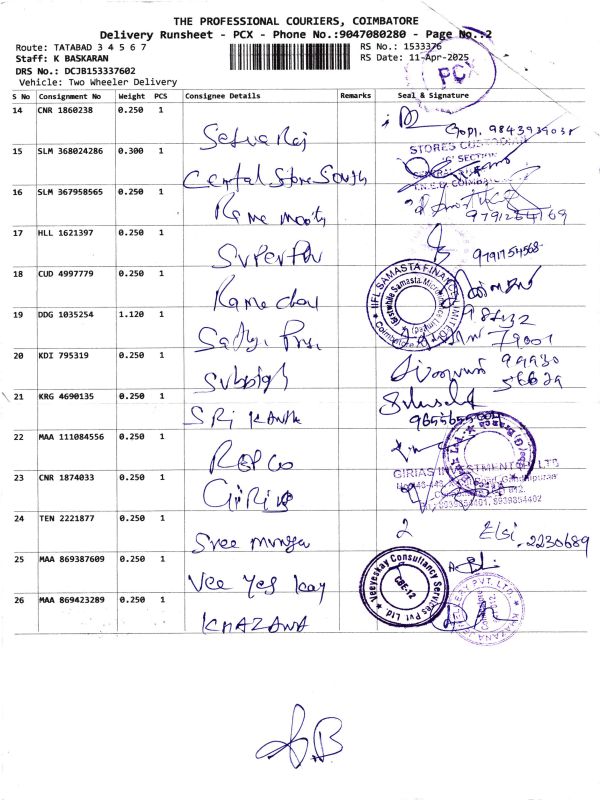 THE PROFESSIONAL COURIERS, COIMBATORE
Delivery Runsheet - PCX - Phone No.:9047080280 - Page No.:2
Route: TATABAD 3 4 5 6 7
RS No.: 1533376
Staff: K BASKARAN
RS Date: 11-Apr-2025
DRS No.: DCJB153337602
Vehicle: Two Wheeler Delivery
PCX
S No Consignment No Weight PCS Consignee Details Remarks Seal & Signature
14 CNR 1860238 0.250 1
Selvaraj
Gopi. 9843939038
15 SLM 368024286 0.300 1
Central Store South
STORES CUSTODIAN
16 SLM 367958565 0.250 1
Rama moorthy
9791254769
17 HLL 1621397 0.250 1
9791754568
18 CUD 4997779 0.250 1
IIFL SAMASTA FINANCE LIMITED
(Erstwhile Samasta Microfinance Limited)
Coimbatore
19 DDG 1035254 1.120 1
98432
79001
20 KDI 795319 0.250 1
Subbiah
99930
56629
21 KRG 4690135 0.250 1
SRi KANTH
9655655004
22 MAA 111084556 0.250 1
REPCO
23 CNR 1874033 0.250 1
GiRiAS
GIRIAS INVESTMENT P LTD
24 TEN 2221877 0.250 1
Sree muruga
2
Elsi
.2230689
25 MAA 869387609 0.250 1
Vee yes kay
Veeyeskay Consultancy Services Pvt Ltd
CBE-12
26 MAA 869423289 0.250 1
KHAZANA
KHAZANA JEWELLERY PVT. LTD.